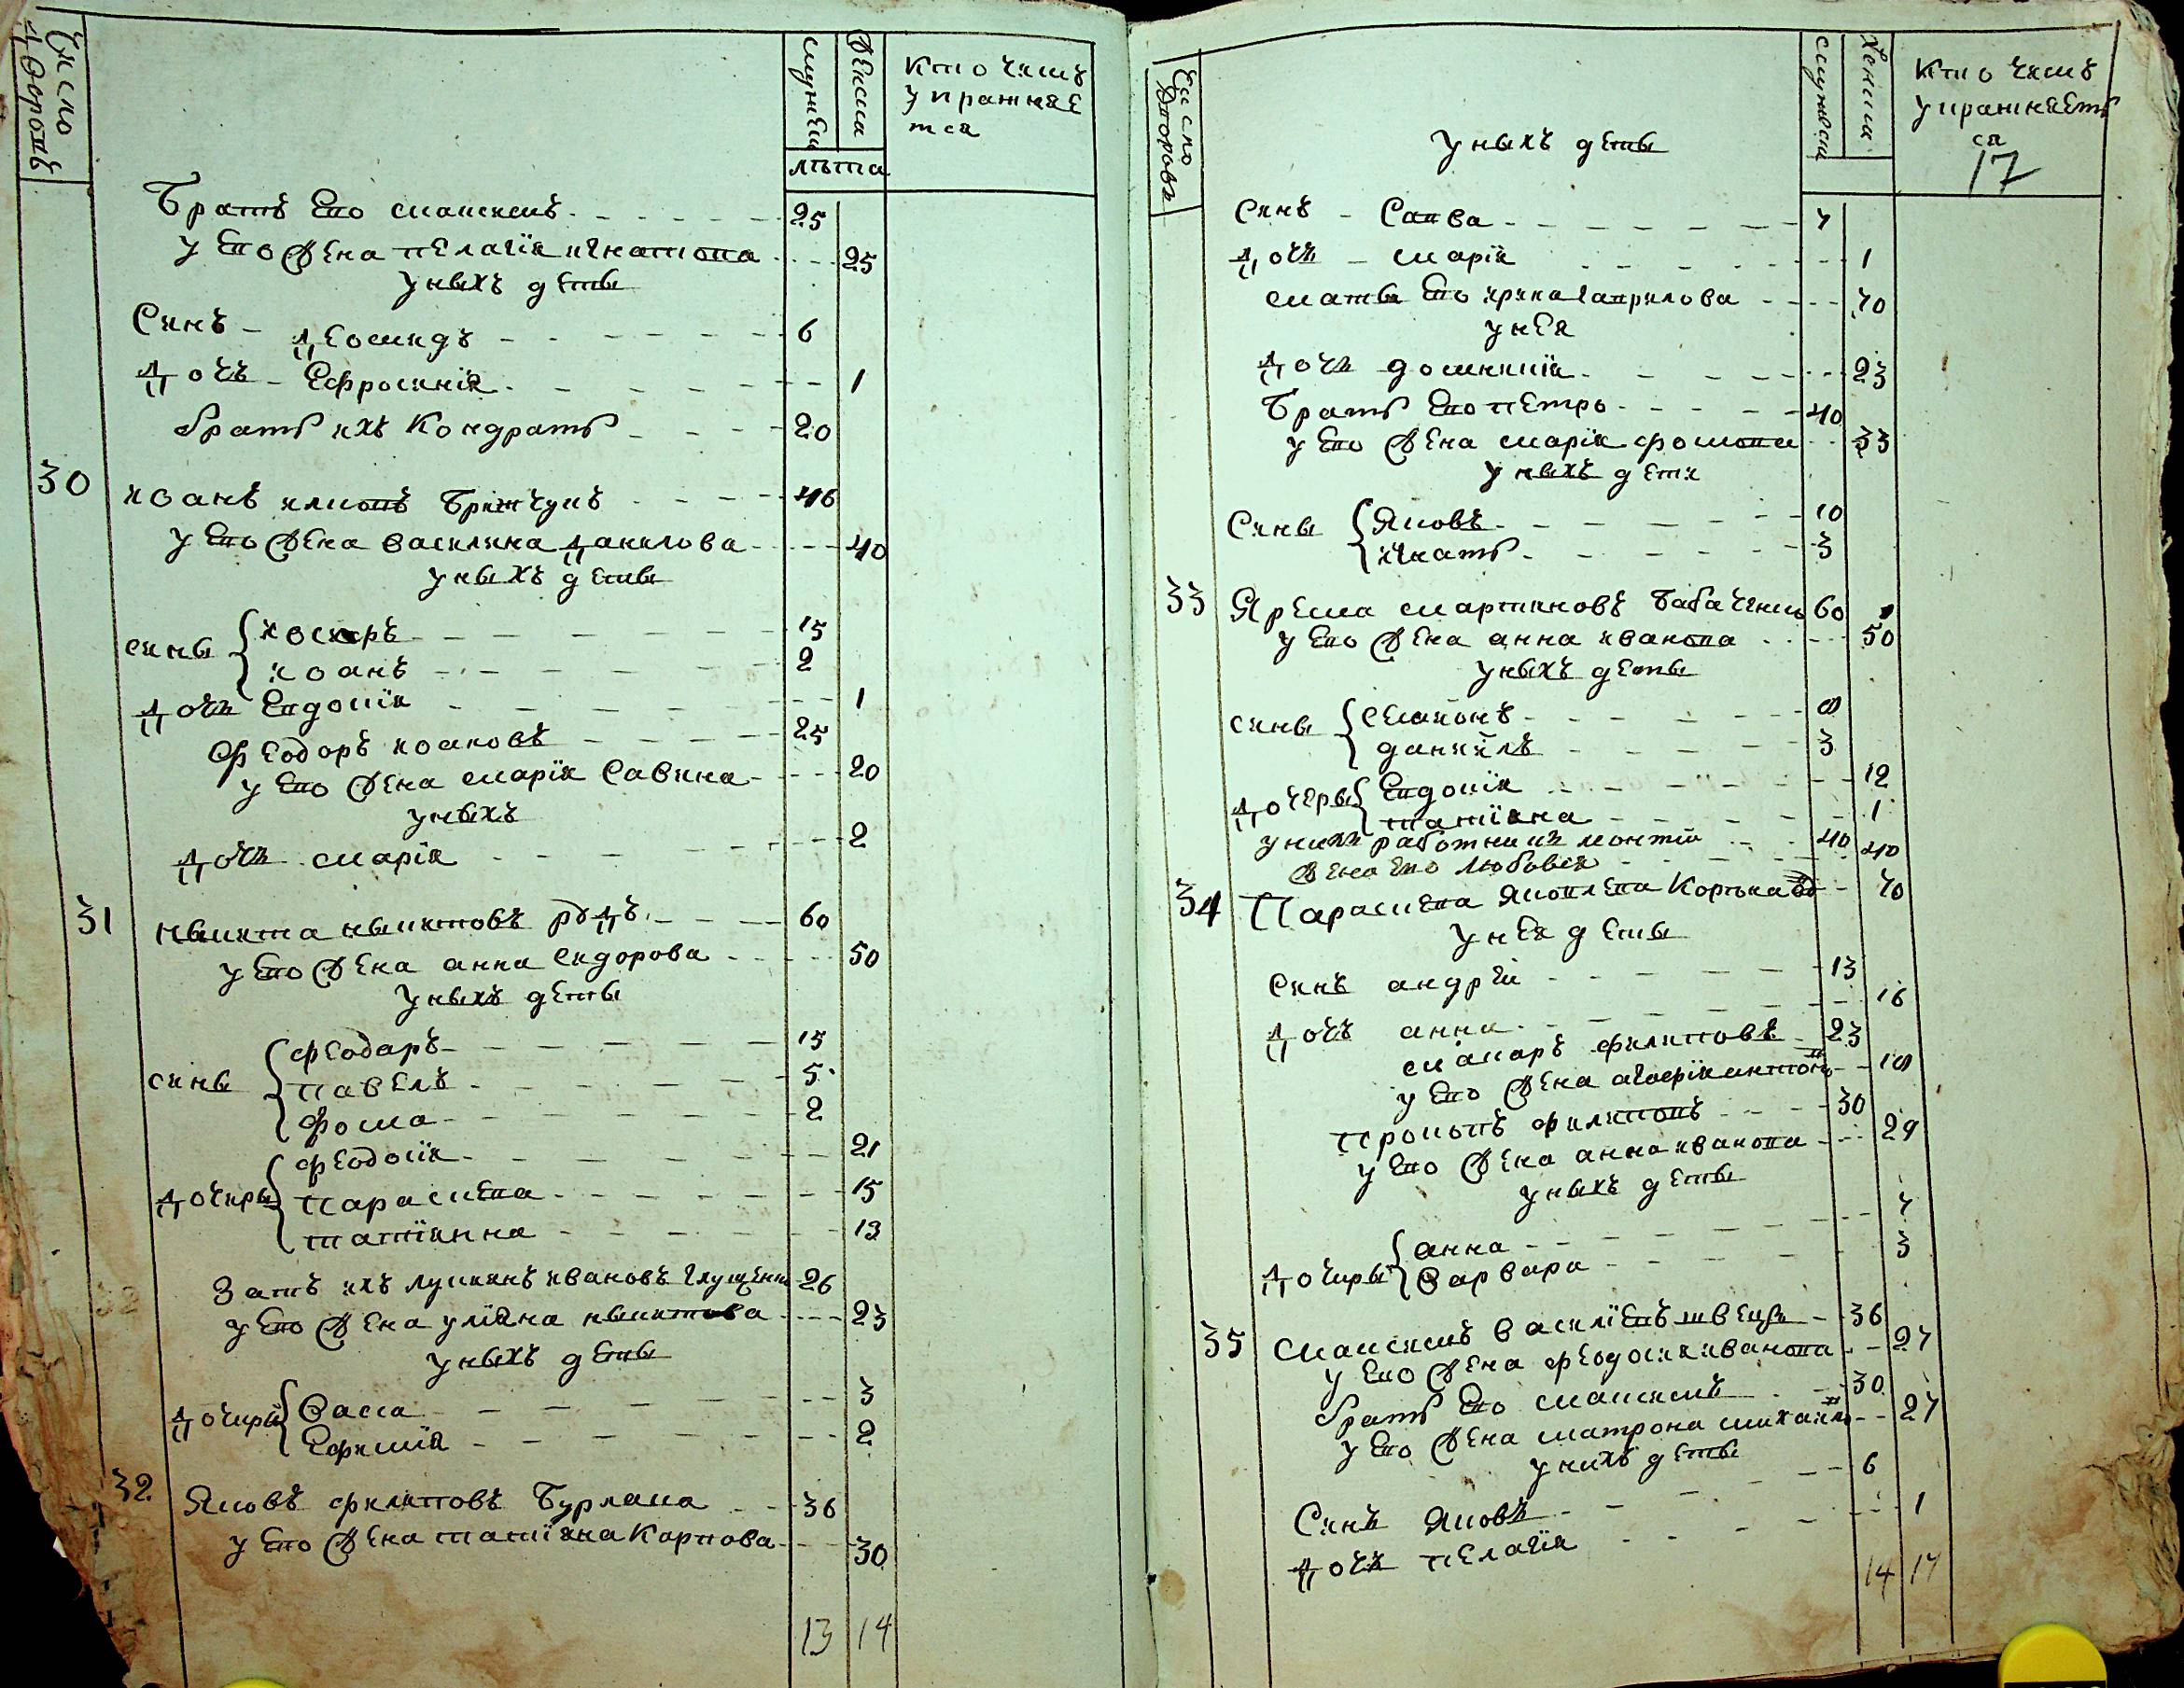 Число дворовъ
мужеска
женска
кто чемъ
упражняе
тся
лѣта
Братъ Его маѯимъ 25
у Его Жена пЕлагїя игнатова 25
у ныхъ дЕты
Синъ - ДЕомидъ 6
Дочъ - Ефросинїя 1
братъ ихъ Кондратъ 20
30 иоанъ климовъ 46
у Его Жена василина Данилова 40
у ныхъ дЕты
сины
иоанъ 2
Дочь Евдокїя 1
ФЕодоръ иоановъ 25
у Его Жена марїя Савина 20
у ныхъ
Дочь марїя 2
31 ныкита ныкитовъ рудъ 60
у Его Жена анна сидорова 50
у ныхъ дЕты
сины фЕодаръ 15
павЕлъ 5
фома 2
Дочиры фЕодосїя 21
параскЕва 15
татїянна 13
Затъ ихъ лукиянъ ивановъ глущЕнко 26
у Его Жена улїяна ныкитова 23
у ныхъ дЕты
Дочиры Васса 3
Ефимїя 2
32 Яковъ филиповъ Бурлака 36
у Его Жена татїяна Карпова 30
13 14
Число Дворовъ
мужеска
женска
кто чемъ
упражняетъ
ся
17
у ныхъ дЕты
Синъ - Савва 7
Дочь - марїя 1
мать Его ирина гаврилова 70
у нЕя
Дочь домникїя 23
Братъ Его пЕтро 40
у Его Жена марїя фомова 33
у ныхъ дЕти
Сины Яковъ 10
игнатъ 3
33 ЯрЕма мартиновъ бабачЕнко 60
у Его Жена анна иванова 50
у ныхъ дЕты
сины сЕмионъ 8
даниїлъ 3
ДочЕры Евдокїя 12
татїяна 1
у нихъ работникъ 40
Жена Его Любовъ 40
34 ПараскЕва ЯковлЕва 70
у нЕя дЕты
Синъ андрЕй 13
Дочъ анна 16
макаръ филиповъ 23
у Его Жена агафїя антонова 18
прокопъ филиповъ 30
у Его Жена анна иванова 29
у ныхъ дЕты
Дочиры анна 7
Варвара 3
35 маѯимъ василїЕвъ швЕцъ 36
у Его Жена фЕодосия иванова 27
братъ Его маѯимъ 30
у Его Жена матрона михаил 27
у нихъ дЕты
Синъ Яковъ 6
Дочь пЕлагїя 1
14 17